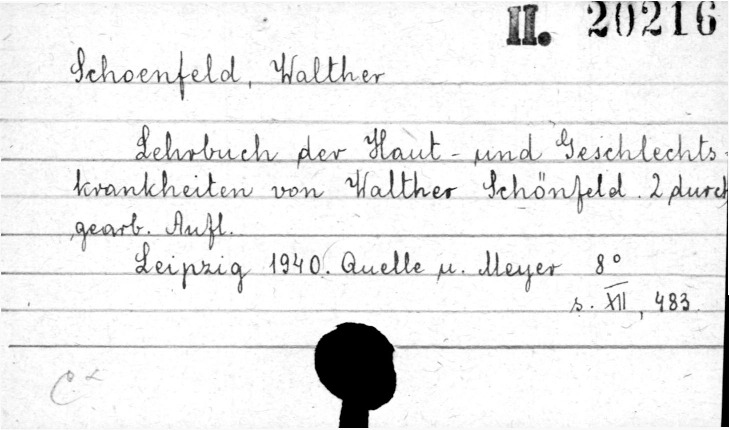 II. 20216
Schoenfeld, Walther
Lehrbuch der Haut- und Geschlechts-
krankheiten von Walther Schönfeld. 2 durch
gearb. Aufl.
Leipzig 1940. Quelle u. Meyer 8°
s. XII, 483
C